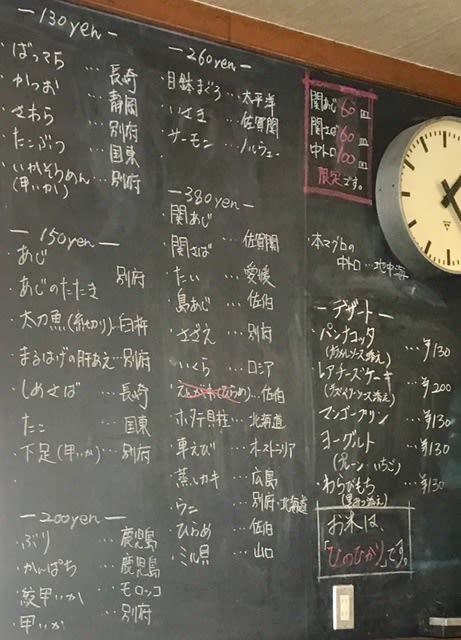 — 130yen —
・ばってら … 長崎
・かつお … 静岡
・さわら … 別府
・たこぶつ … 国東
・いかそうめん … 別府
(甲いか)
— 150yen —
・あじ
・あじのたたき 別府
・太刀魚(糸切り)…臼杵
・まるはげの肝あえ…別府
・しめさば … 長崎
・たこ … 国東
・下足(甲いか) … 別府
— 200yen —
・ぶり … 鹿児島
・かんぱち … 鹿児島
・紋甲いか … モロッコ
・甲いか … 別府
— 260yen —
・目鉢まぐろ … 太平洋
・いさき … 佐賀関
・サーモン … ノルウェー
— 380yen —
・関あじ
・関さば … 佐賀関
・たい … 愛媛
・島あじ … 佐伯
・さざえ … 別府
・いくら … ロシア
…佐伯
・ホタテ貝柱 … 北海道
・車えび … オーストラリア
・蒸しカキ … 広島
・うに … 別府・北海道
・ひらめ … 佐伯
・ミル貝 … 山口
関あじ 60皿
関さば 60皿
中トロ 100皿
限定です。
・本マグロの
中トロ…地中海
— デザート —
・パンナコッタ …¥130
(カラメルソース添え)
・レアチーズケーキ …¥200
・マンゴープリン …¥130
・ヨーグルト …¥130
(プレーン いちご)
・わらびもち …¥130
(黒みつ添え)
お米は、
「ひのひかり」です。